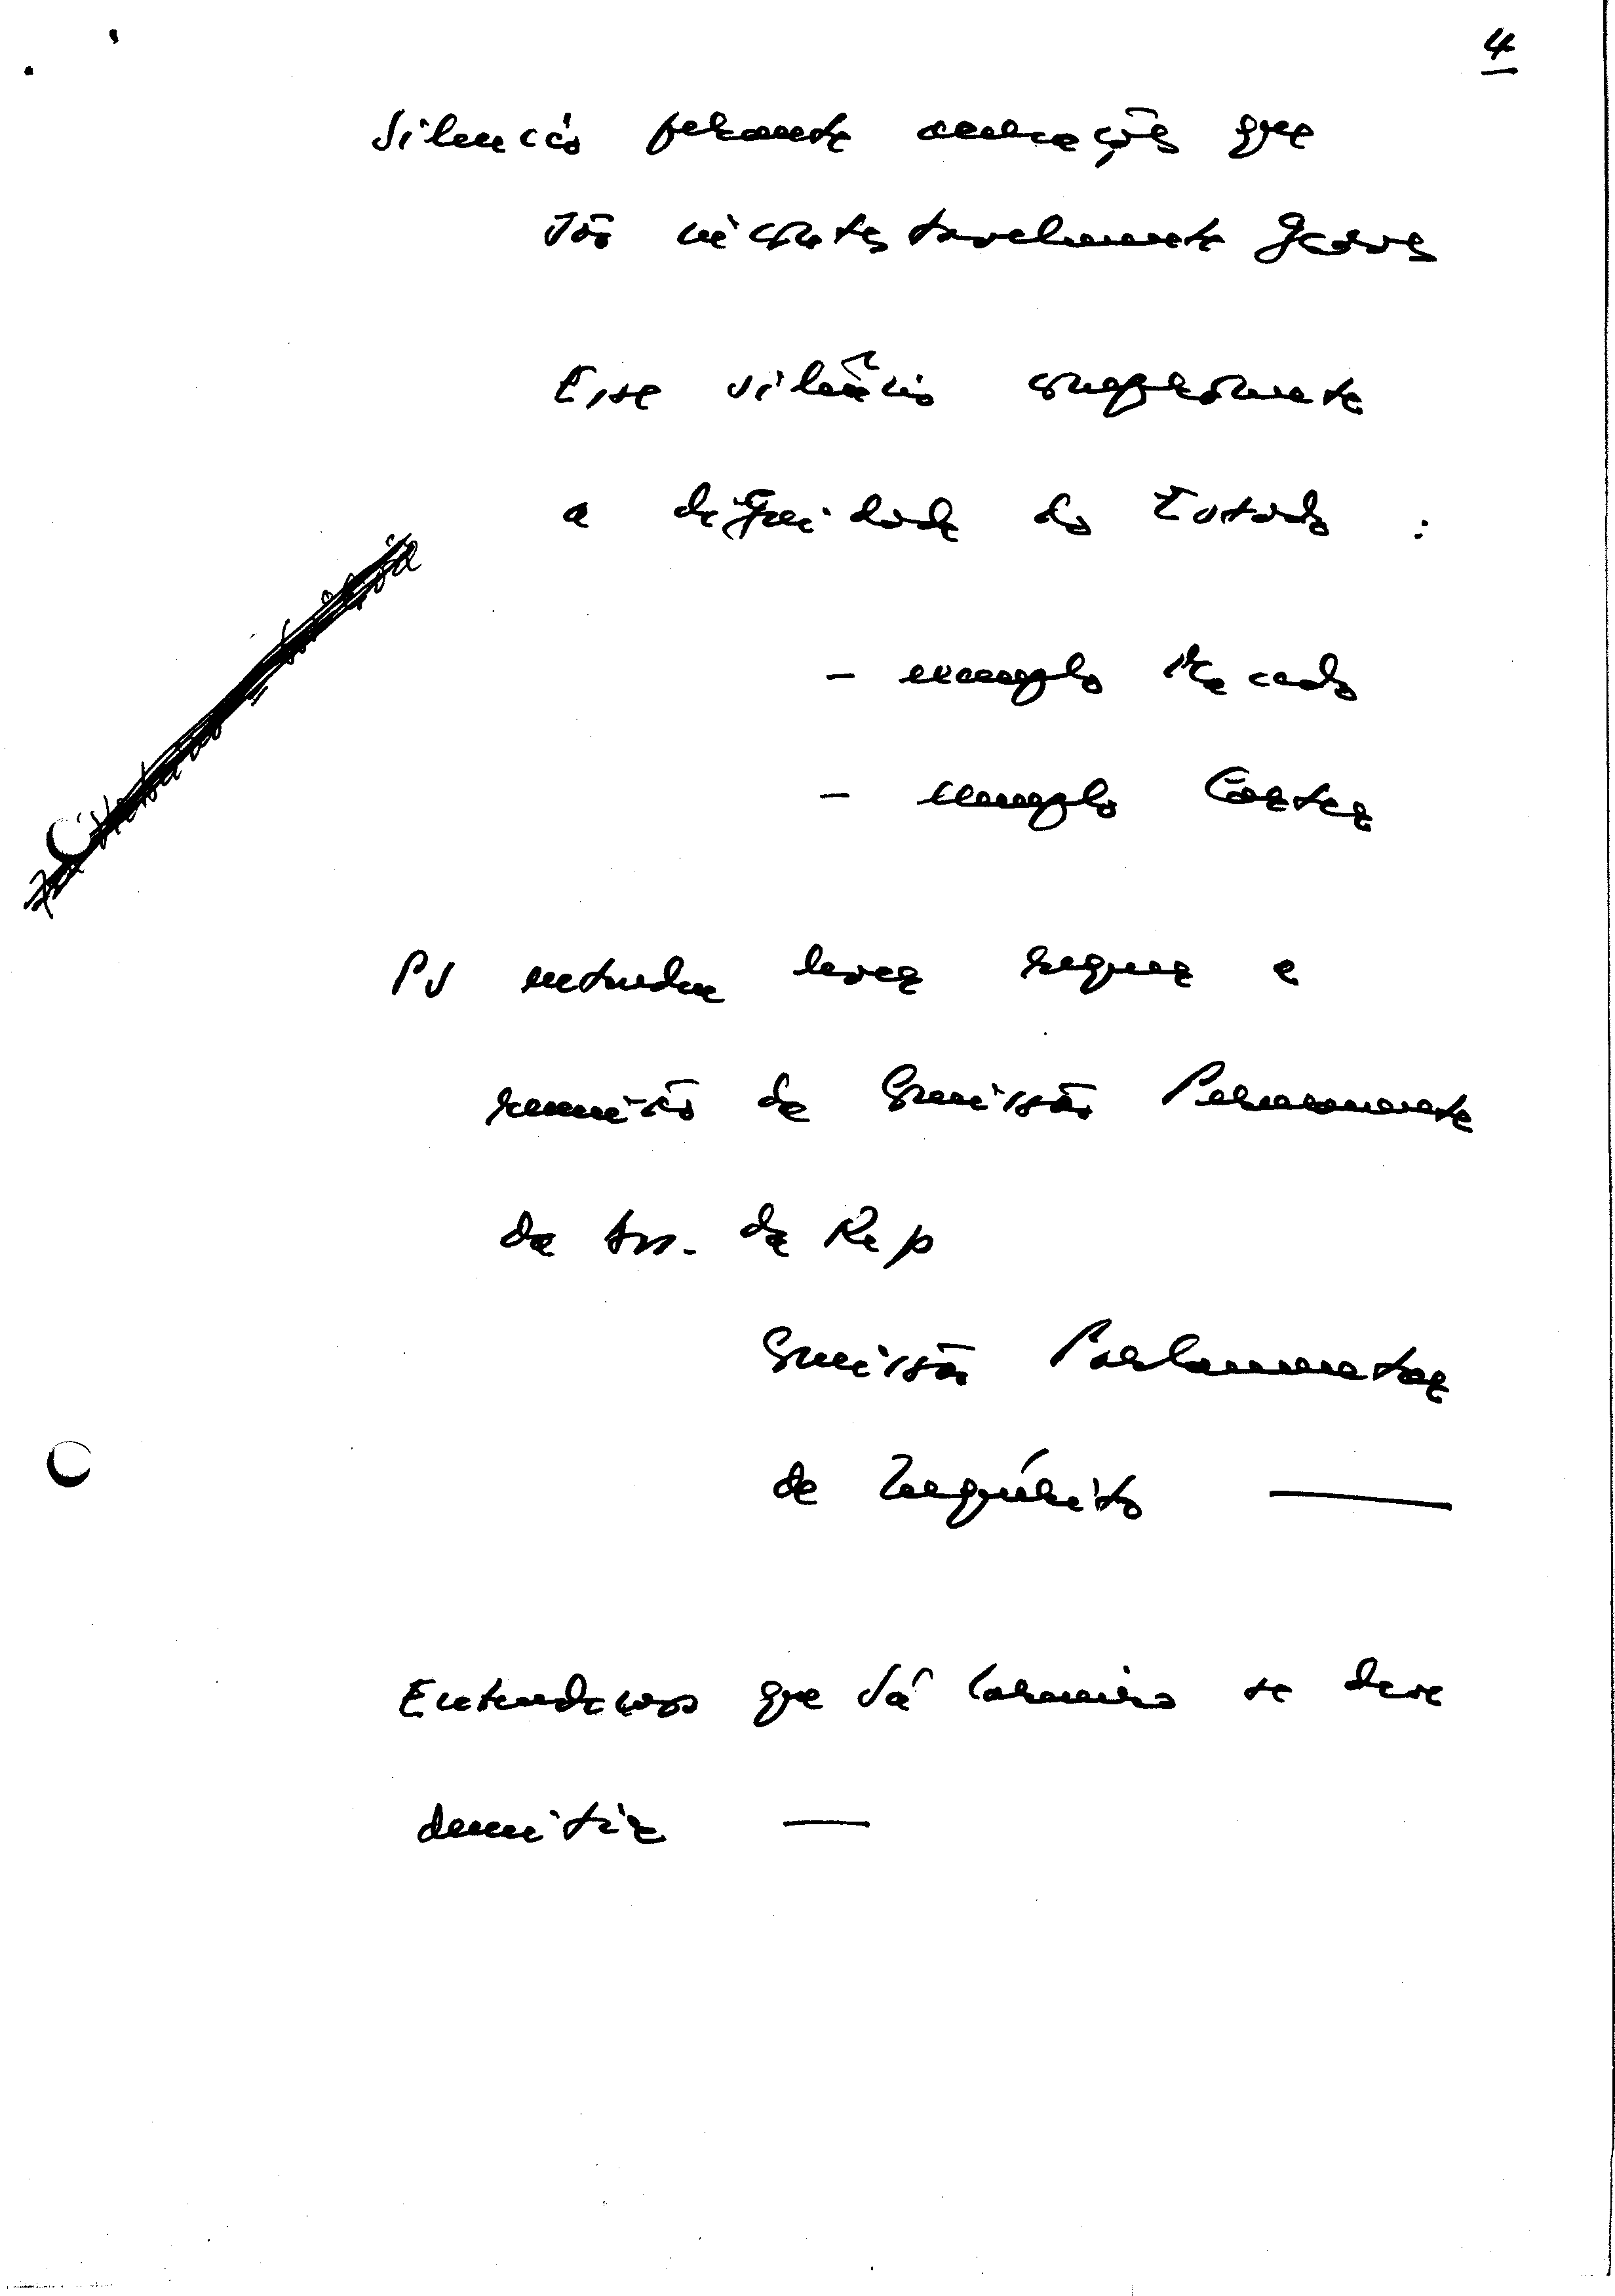 4
Silencio perante acusações que
são incontestavelmente graves
Esse silêncio compromete
a dignidade do Estado :
- exemplo Macedo
- exemplo Cortez
PS entende levar requer a
reunião da Comissão Permanente
da Ass. da Rep
Comissão Parlamentar
de Inquérito —
Entendemos que Sá Carneiro se deve
demitir —